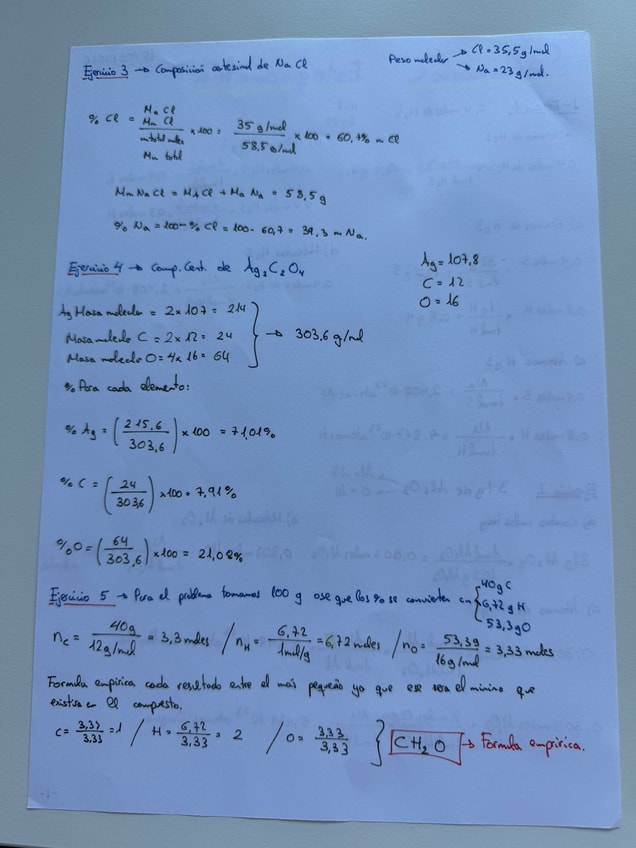 Ejercicio 3 → Composición centesimal de NaCl
Peso molecular → Cl = 35,5 g/mol
→ Na = 23 g/mol.
% Cl = Mm Cl / Mm total × 100 = 35 g/mol / 58,5 g/mol × 100 = 60,7% m Cl
Mm NaCl = Mm Cl + Mm Na = 58,5 g
% Na = 100 - % Cl = 100 - 60,7 = 39,3 m Na.
Ejercicio 4 → Comp. Cent. de Ag₂C₂O₄
Ag = 107,8
C = 12
O = 16
Ag Masa molecular = 2 × 107 = 214
Masa molecular C = 2 × 12 = 24
Masa molecular O = 4 × 16 = 64
} → 303,6 g/ml
% Para cada elemento:
% Ag = (215,6 / 303,6) × 100 = 71,01%
% C = (24 / 303,6) × 100 = 7,91%
% O = (64 / 303,6) × 100 = 21,08%
Ejercicio 5 → Para el problema tomamos 100 g ose que los % se convierten en { 40g C
6,72 g H
53,3 g O
nC = 40g / 12g/mol = 3,3 moles / nH = 6,72 / 1mol/g = 6,72 moles / nO = 53,3g / 16g/mol = 3,33 moles
Formula empirica cada resultado entre el más pequeño ya que ese sera el minimo que
existira en el compuesto.
C = 3,33 / 3,33 = 1 / H = 6,72 / 3,33 = 2 / O = 3,33 / 3,33 } CH₂O → Formula empririca.
-1-